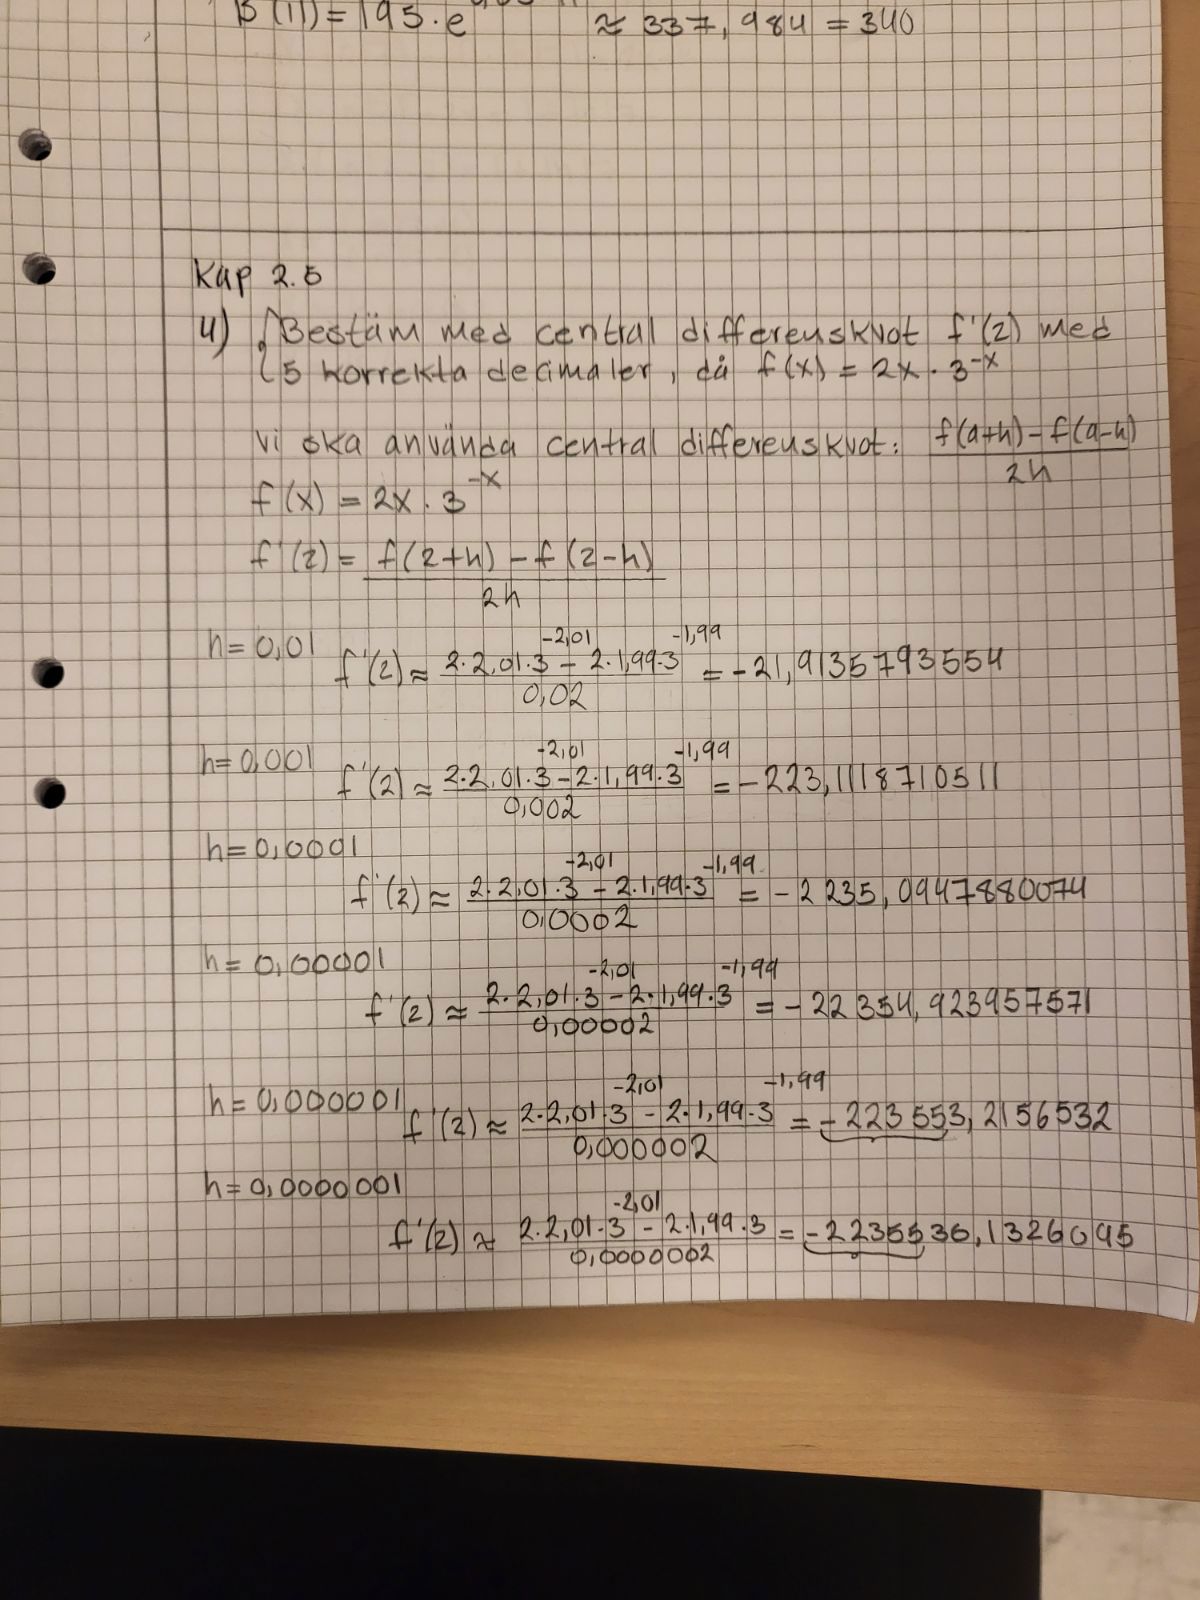 B(11) = 195 · e ≈ 337,984 = 340
Kap 2.5
4) Bestäm med central differenskvot f'(2) med
5 korrekta decimaler, då f(x) = 2x · 3^-x
Vi ska använda central differenskvot: f(a+h) - f(a-h) / 2h
f(x) = 2x · 3^-x
f'(2) = f(2+h) - f(2-h) / 2h
h = 0,01 f'(2) ≈ 2·2,01·3^-2,01 - 2·1,99·3^-1,99 / 0,02 = -21,9135793554
h = 0,001 f'(2) ≈ 2·2,01·3^-2,01 - 2·1,99·3^-1,99 / 0,002 = -223,1118710511
h = 0,0001
f'(2) ≈ 2·2,01·3^-2,01 - 2·1,99·3^-1,99 / 0,0002 = -2235,0947880074
h = 0,00001
f'(2) ≈ 2·2,01·3^-2,01 - 2·1,99·3^-1,99 / 0,00002 = -22354,923957571
h = 0,000001 f'(2) ≈ 2·2,01·3^-2,01 - 2·1,99·3^-1,99 / 0,000002 = -223553,2156532
h = 0,0000001
f'(2) ≈ 2·2,01·3^-2,01 - 2·1,99·3^-1,99 / 0,0000002 = -2235536,1326095